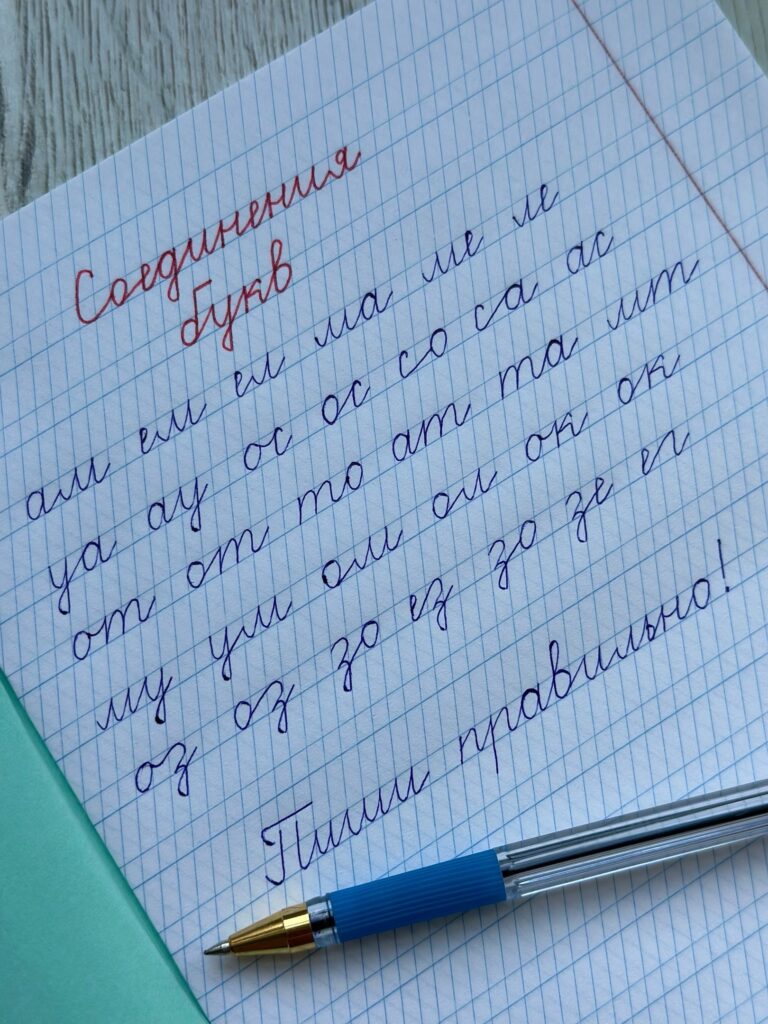 Соединения
букв
ам ем ел ма ме ле
уа ау ос ос со са ас
от от то ат та мт
му ум ом ол ок ок
оз оз зо ез зо зе ег
Пиши правильно!